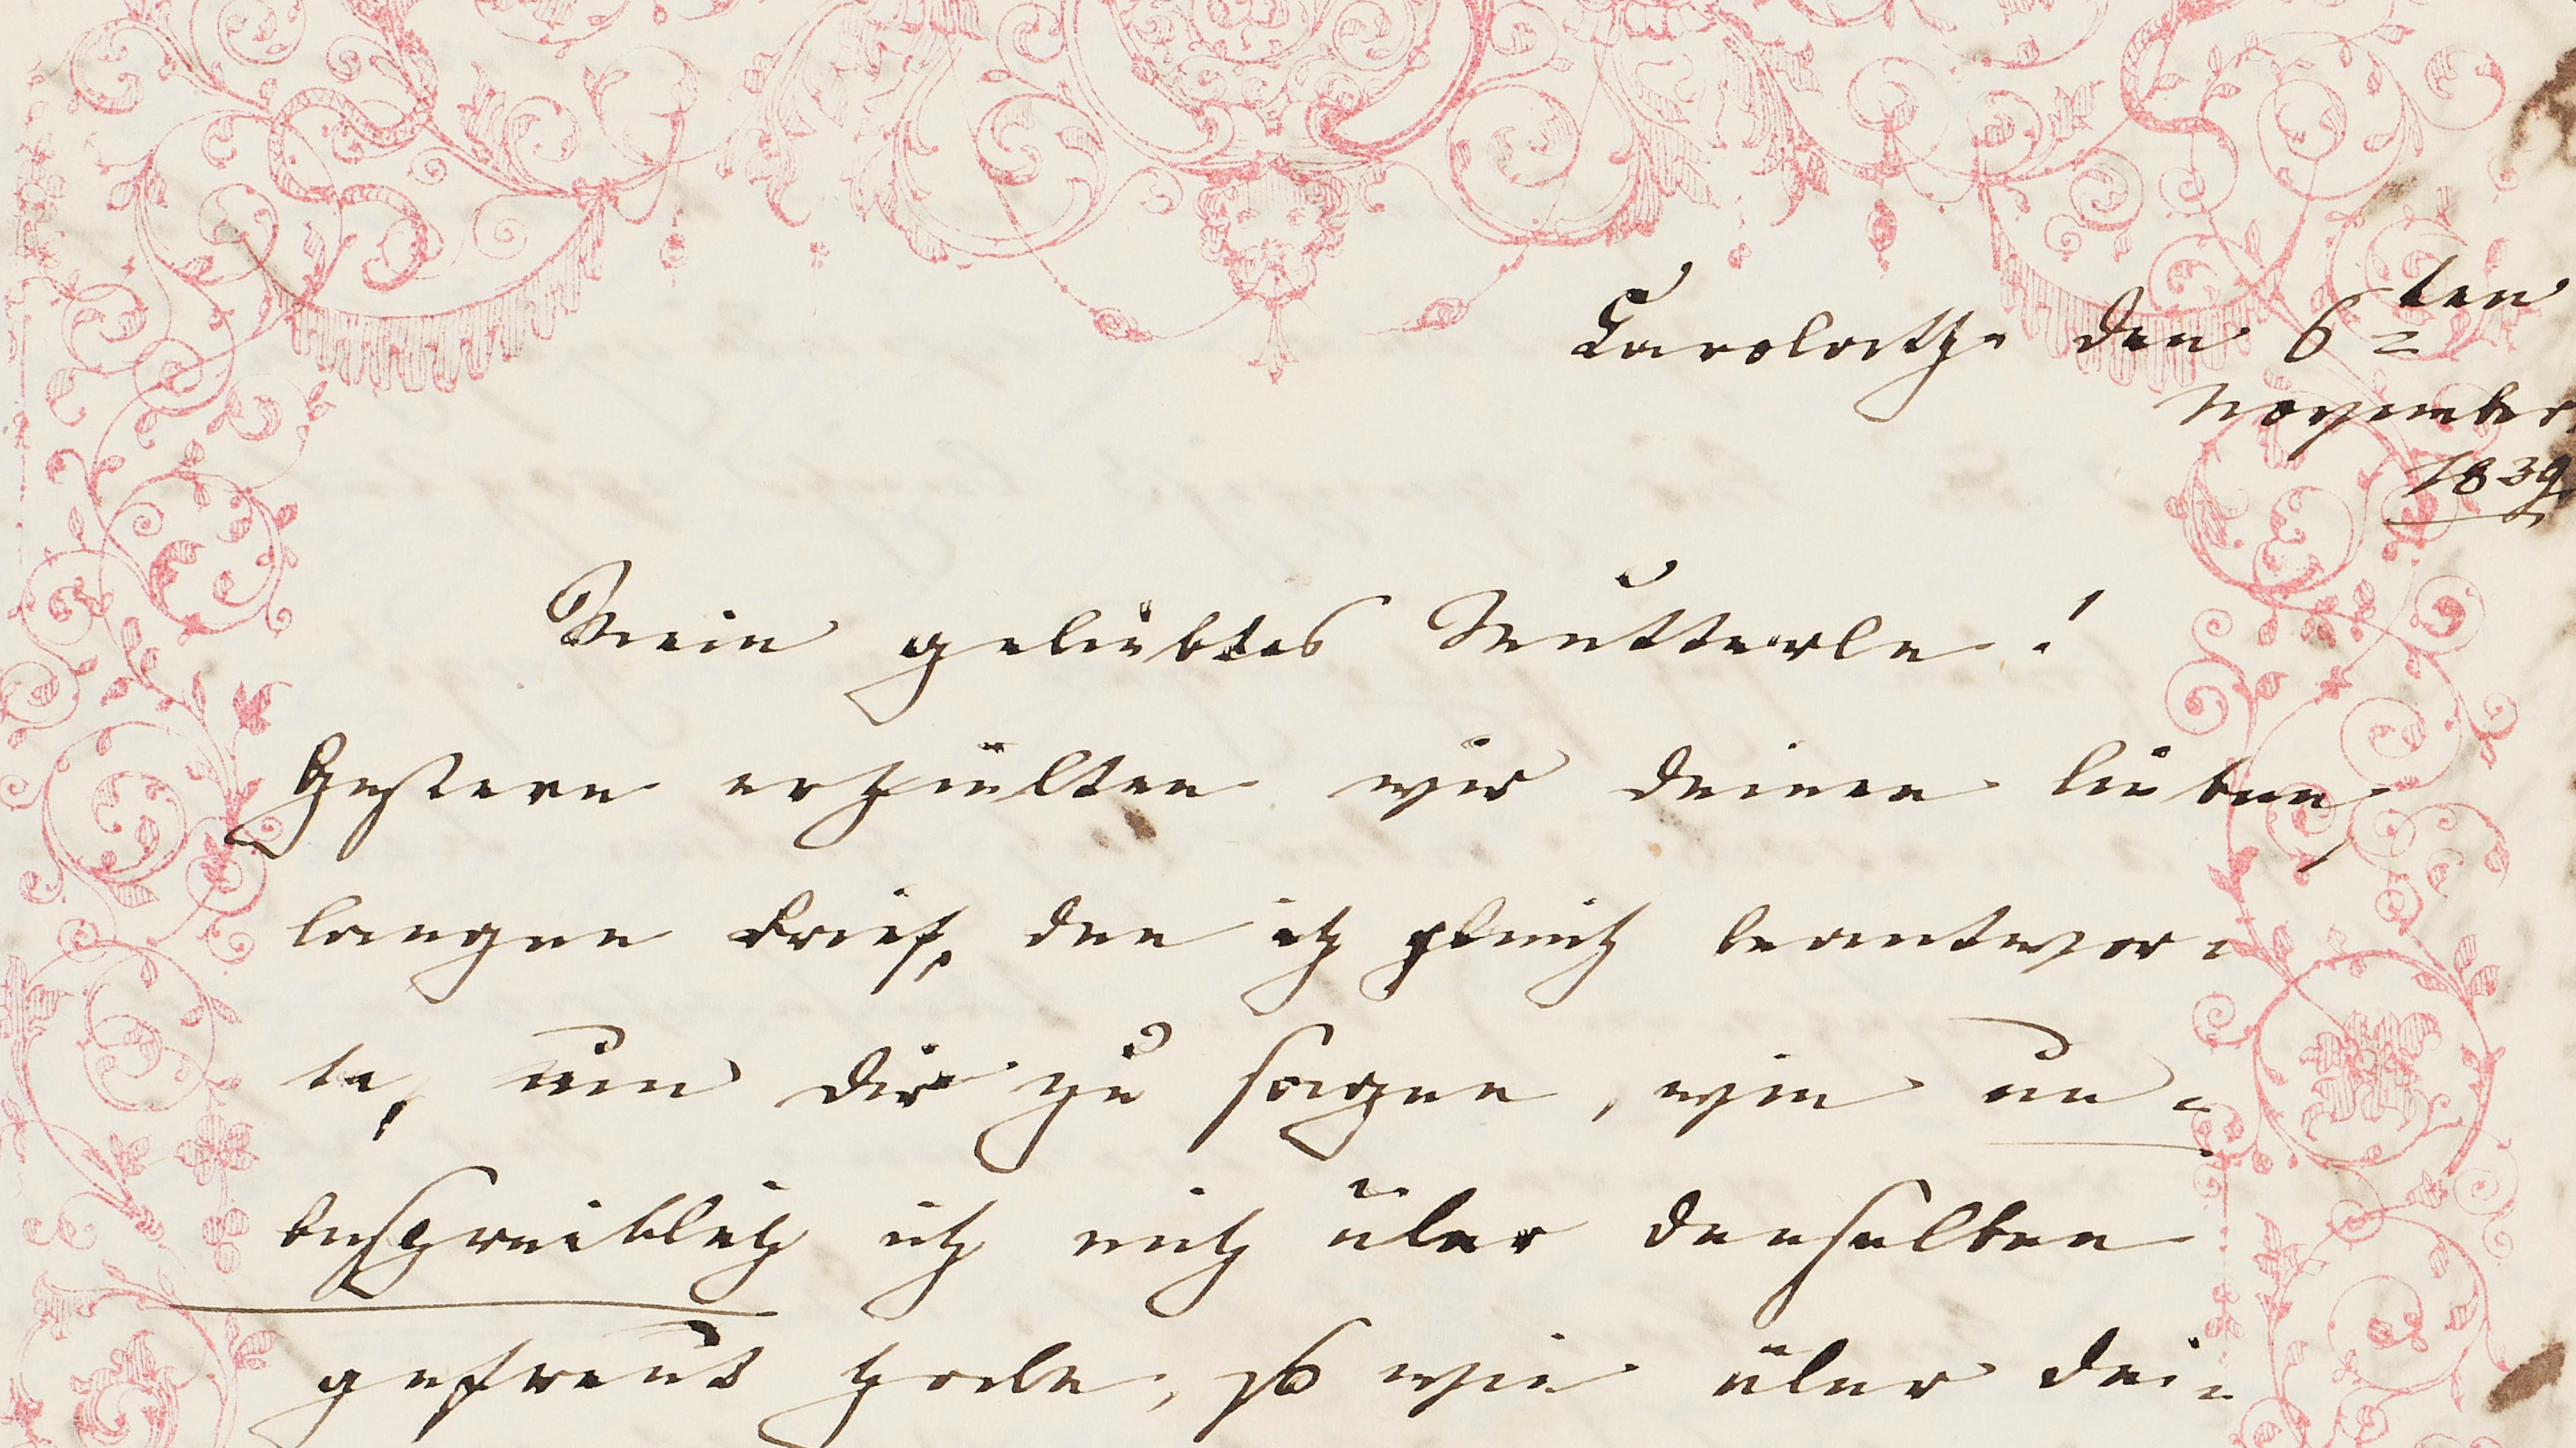 Carolath den 6ten
November
1839
Mein geliebtes Mutterle!
Gestern erhielten wir deinen lieben,
langen Brief, den ich gleich beantwor=
te, um dir zu sagen, wie un=
beschreiblich ich mich über denselben
gefreut habe, so wie über dei=